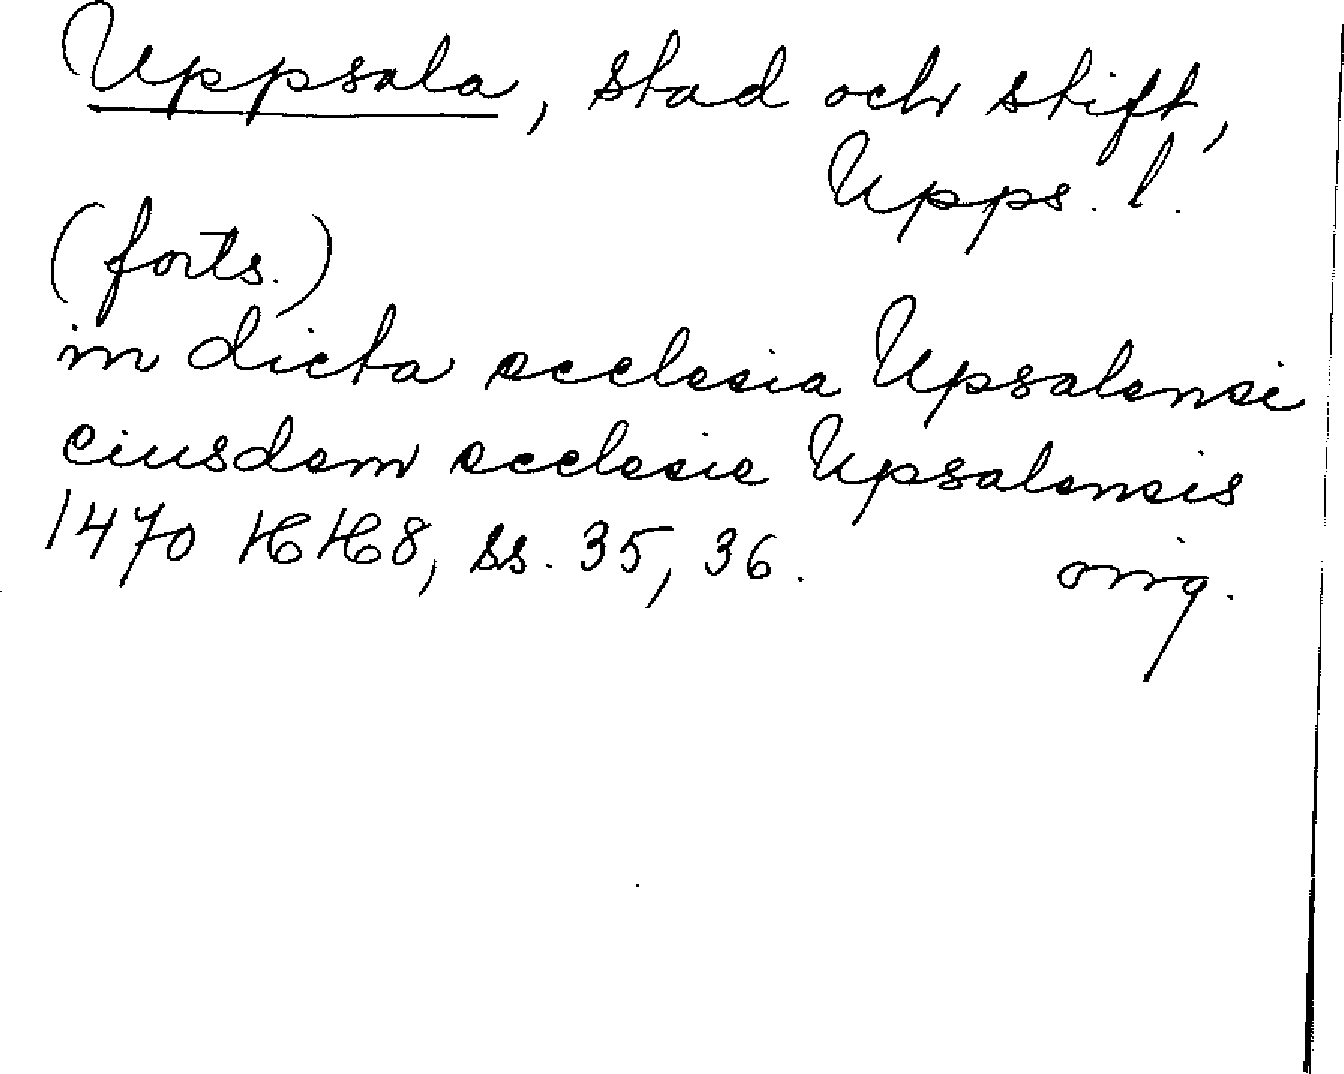 Uppsala, stad och stift,
Upps. l.
(forts.)
in dicta ecclesia Upsalensi
eiusdem ecclesie Upsalensis
1470 HH8, ss. 35, 36. orig.